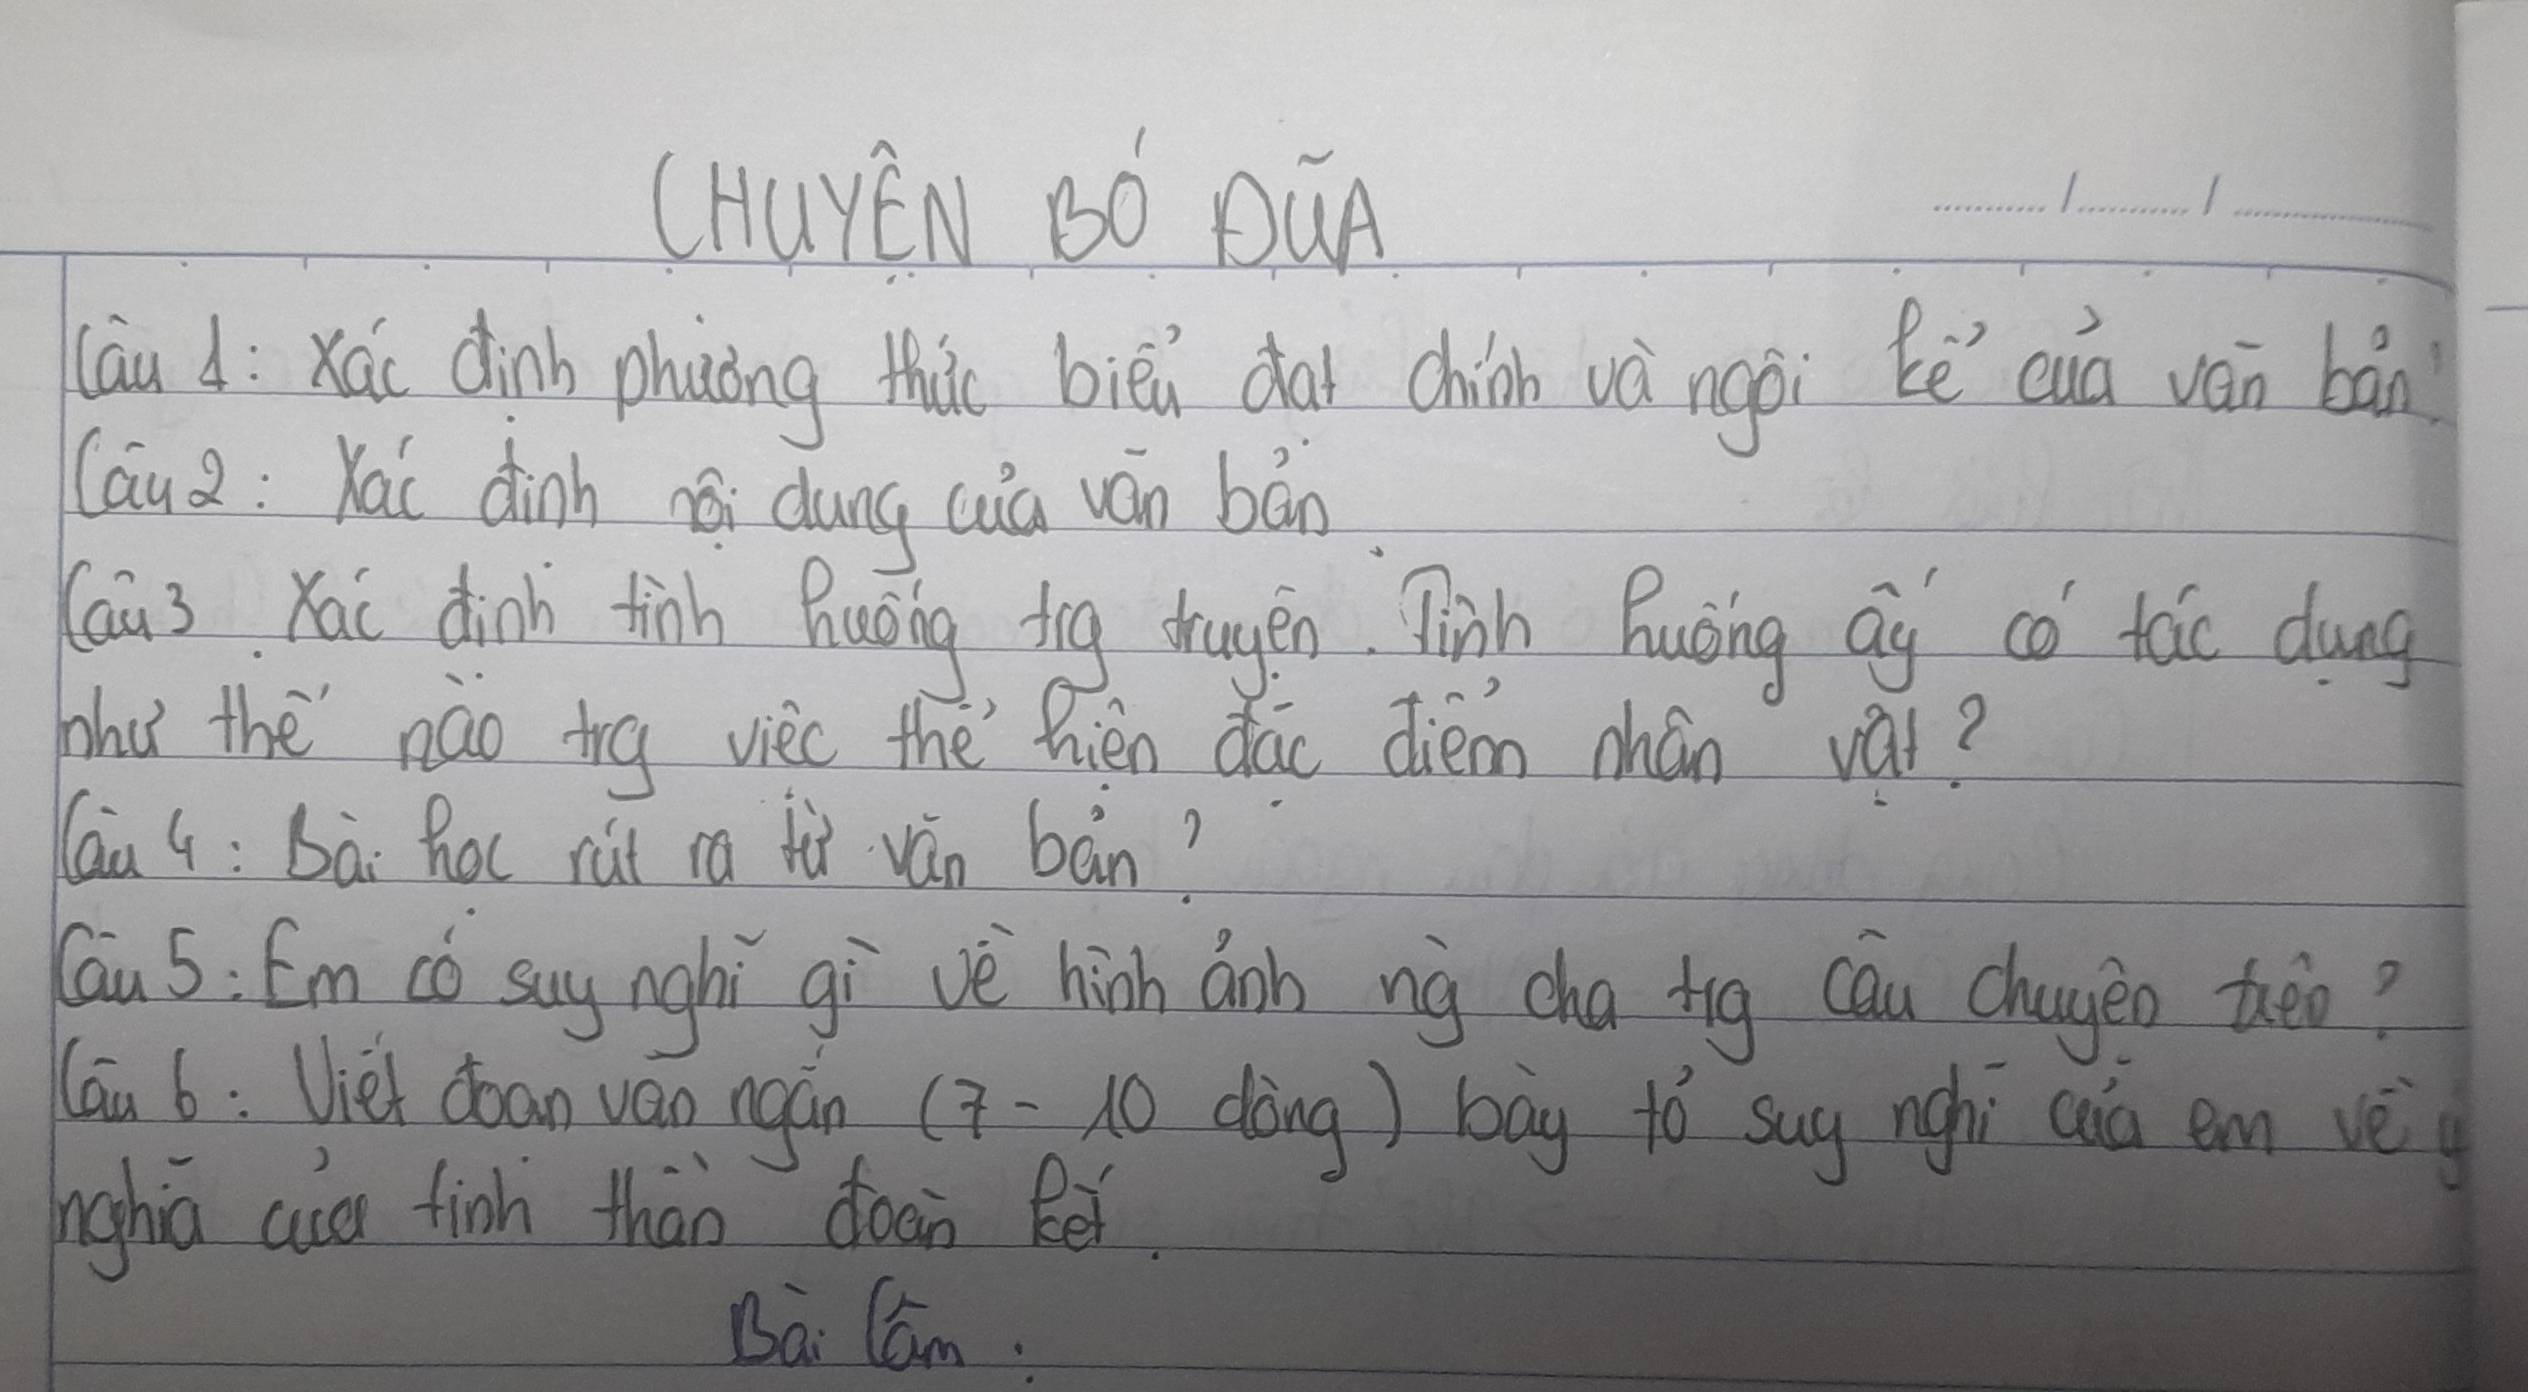 CHUYỆN BÓ ĐŨA
Câu 1: Xác định phương thức biểu đạt chính và ngôi kể của văn bản?
Câu 2: Xác định nội dung của văn bản.
Câu 3. Xác định tình huống trg truyện. Tình huống ấy có tác dụng
như thế nào trg việc thể hiện đặc điểm nhân vật?
Câu 4: Bài học rút ra từ văn bản?
Câu 5: Em có suy nghĩ gì về hình ảnh ng cha trg câu chuyện trên?
Câu 6: Viết đoạn văn ngắn (7-10 dòng) bày tỏ suy nghĩ của em về ý
nghĩa của tinh thần đoàn kết.
Bài làm: